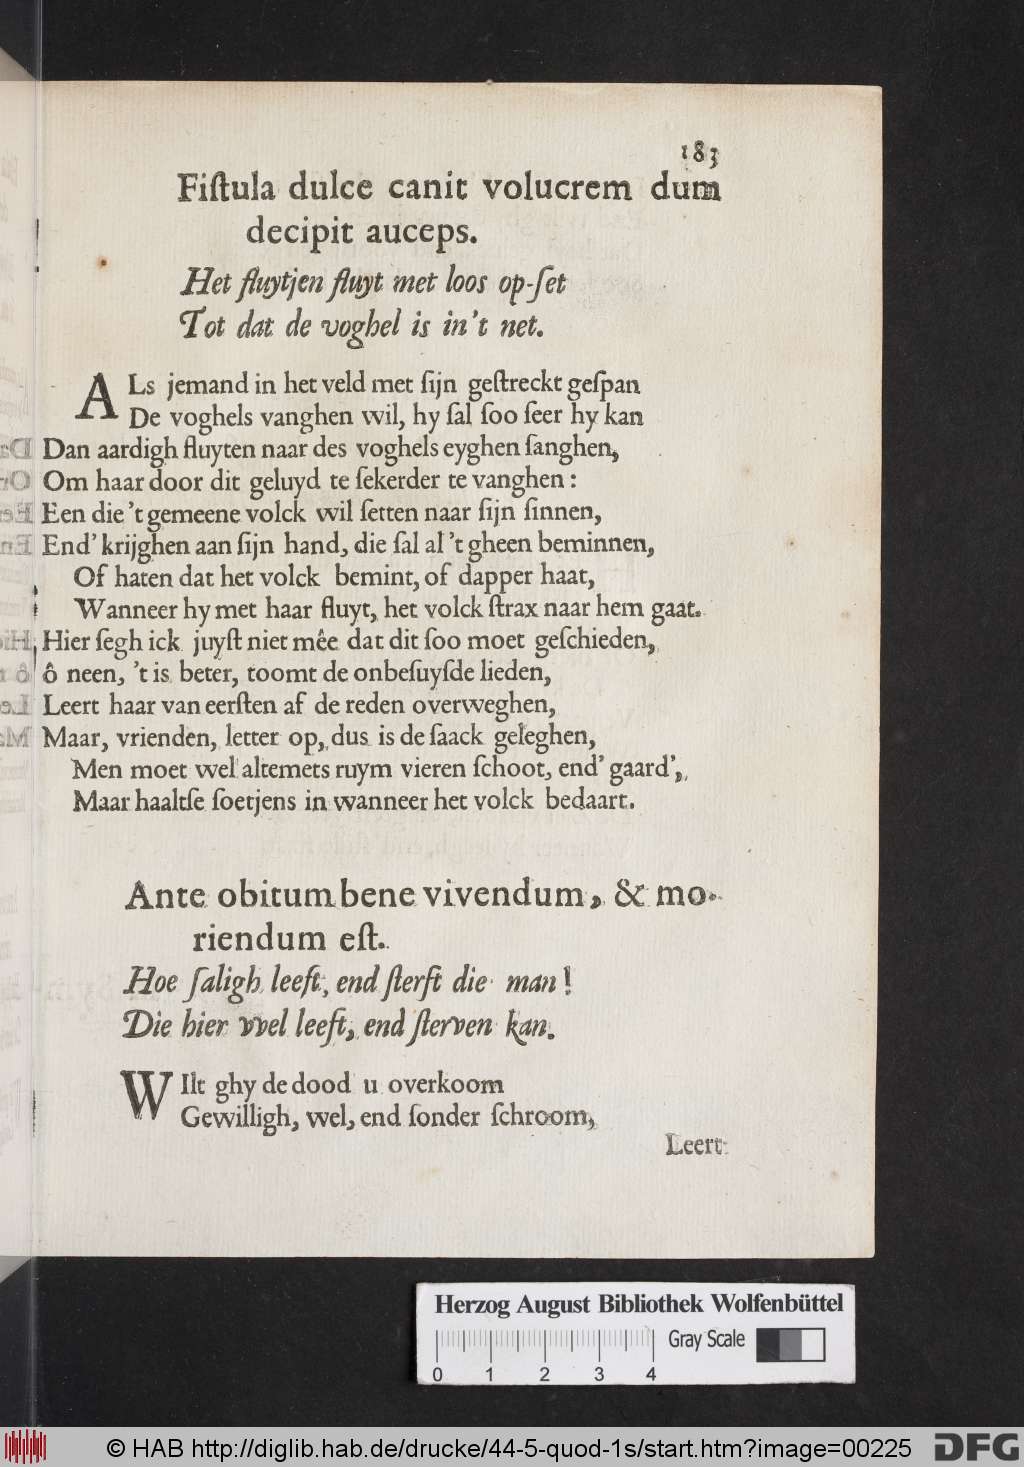 183
Fiſtula dulce canit volucrem dum
decipit auceps.
Het fluytjen fluyt met loos op-ſet
Tot dat de voghel is in't net.
ALs jemand in het veld met ſijn geſtreckt geſpan
De voghels vanghen wil, hy ſal ſoo ſeer hy kan
Dan aardigh fluyten naar des voghels eyghen ſanghen,
Om haar door dit geluyd te ſekerder te vanghen:
Een die 't gemeene volck wil ſetten naar ſijn ſinnen,
End' krijghen aan ſijn hand, die ſal al 't gheen beminnen,
Of haten dat het volck bemint, of dapper haat,
Wanneer hy met haar fluyt, het volck ſtrax naar hem gaat.
Hier ſegh ick juyſt niet mêe dat dit ſoo moet geſchieden,
ô neen, 't is beter, toomt de onbeſuyſde lieden,
Leert haar van eerſten af de reden overweghen,
Maar, vrienden, letter op, dus is de ſaack geleghen,
Men moet wel altemets ruym vieren ſchoot, end' gaard',
Maar haaltſe ſoetjens in wanneer het volck bedaart.
Ante obitum bene vivendum, & mo-
riendum eſt.
Hoe ſaligh leeft, end ſterft die man!
Die hier wel leeft, end ſterven kan.
WIlt ghy de dood u overkoom
Gewilligh, wel, end ſonder ſchroom,
Leert
Herzog August Bibliothek Wolfenbüttel
Gray Scale
0 1 2 3 4
© HAB http://diglib.hab.de/drucke/44-5-quod-1s/start.htm?image=00225
DFG